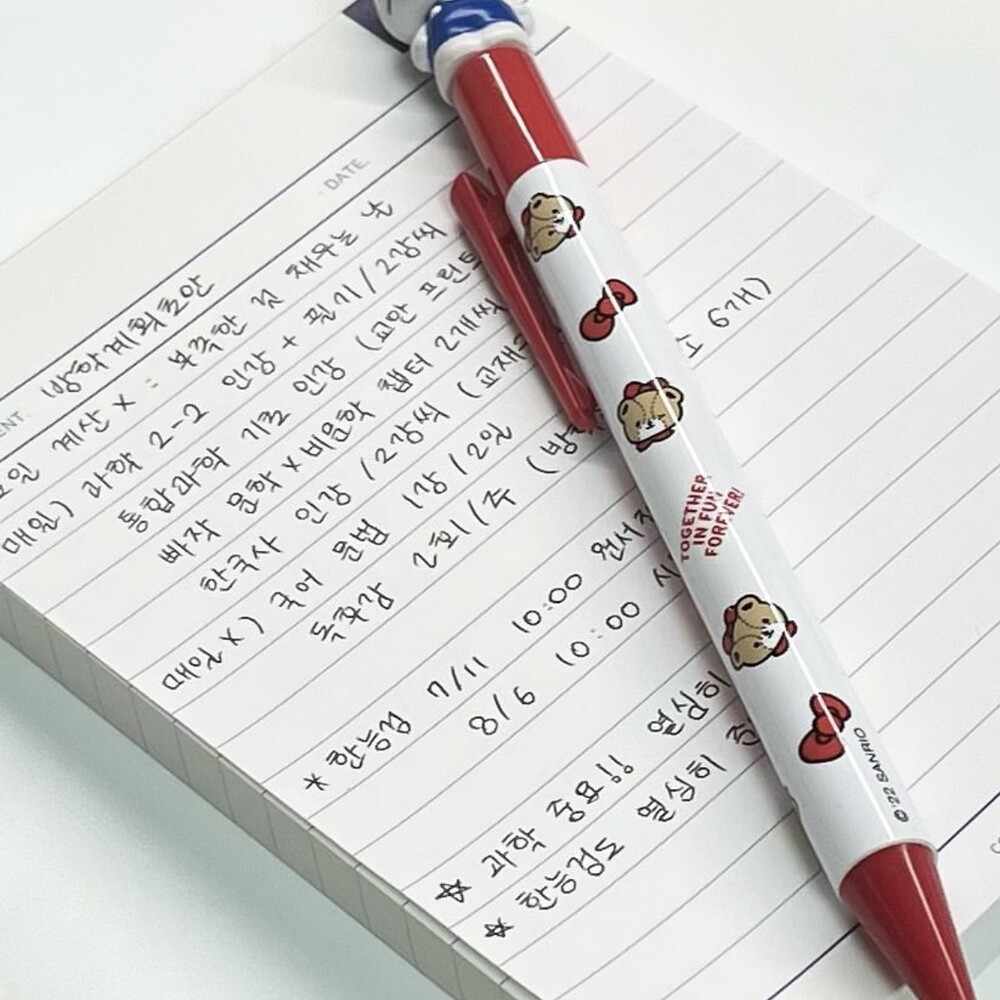 DATE.
방학계획초안
요일 계산 X : 부족한 것 채우는 날
매일) 과학 2-2 인강 + 필기 / 2강씩
통합과학 기초 인강 (교안 프린트
빠작 문학 X 비문학 챕터 2개씩
한국사 인강 / 2강씩 (교재
매일 X) 국어 문법 1강 / 2일
독후감 2회 / 주 (방 6개)
* 한능검 7/11 10:00 원서
8/6 10:00
☆ 과학 중요!! 열심히
☆ 한능검도 열심히
TOGETHER
IN FUN
FOREVER!
©'22 SANRIO